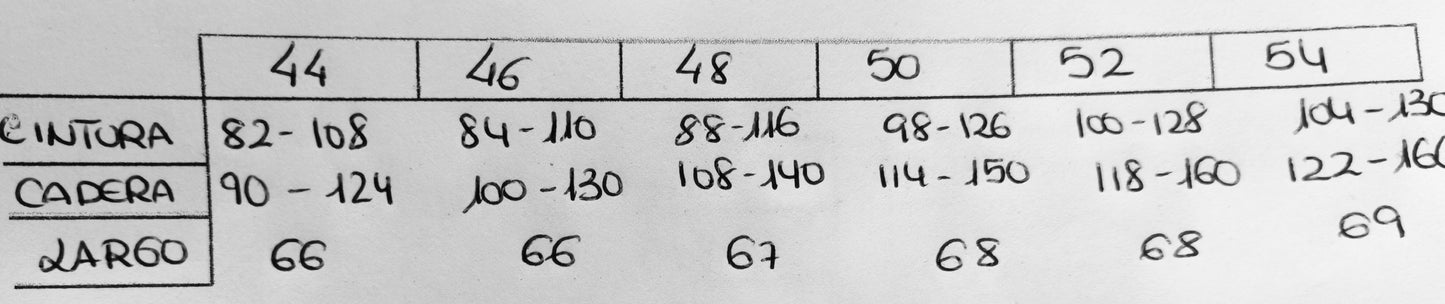 44 46 48 50 52 54
CINTURA 82-108 84-110 88-116 98-126 100-128 104-130
CADERA 90-124 100-130 108-140 114-150 118-160 122-160
LARGO 66 66 67 68 68 69